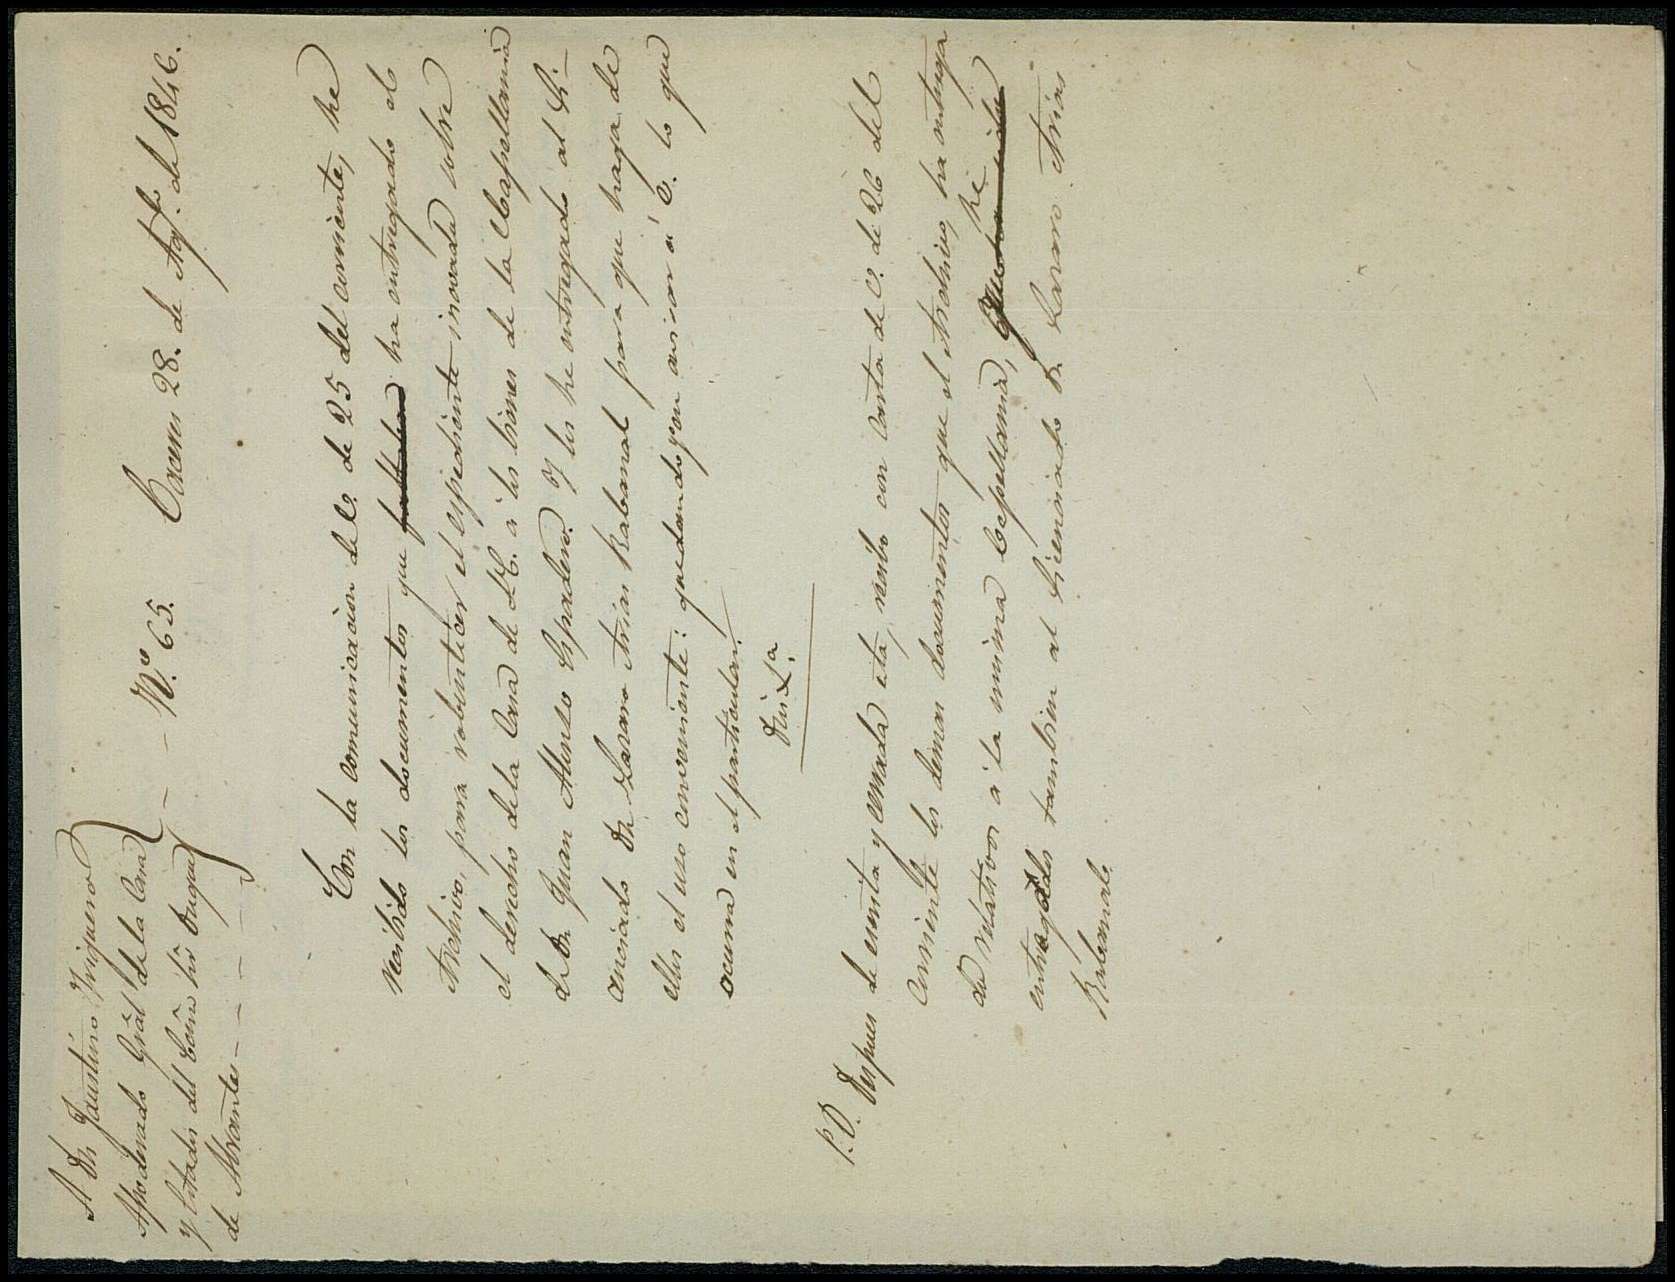 A Dn Faustino Trigueros
Apoderado Gral de la Casa
y Estados del Excmo Sor Duque
de Abrantes
Nº. 65.
Cáceres 28. de Agto. de 1846.
Con la comunicacion de V. de 25 del corriente, he
recibido los documentos que ha entregado el
Archivo, para robustecer el espediente incoado sobre
el derecho de la Casa de S.E. á los bienes de la Capellania
de Dn Juan Alonso Espadero. Y los he entregado al Li-
cenciado Dn Lazaro Arias Rabanal para que haga de
ellos el uso conveniente: quedando yo en avisar á V. lo que
ocurra en el particular.
P.D. Despues de escrita y cerrada esta, recibo con carta de V. de 26 del
corriente los demas documentos que el Archivo ha entrega
do relativos á la misma Capellania, que he
entregado tambien al Licenciado Dn Lazaro Arias
Rabanal.